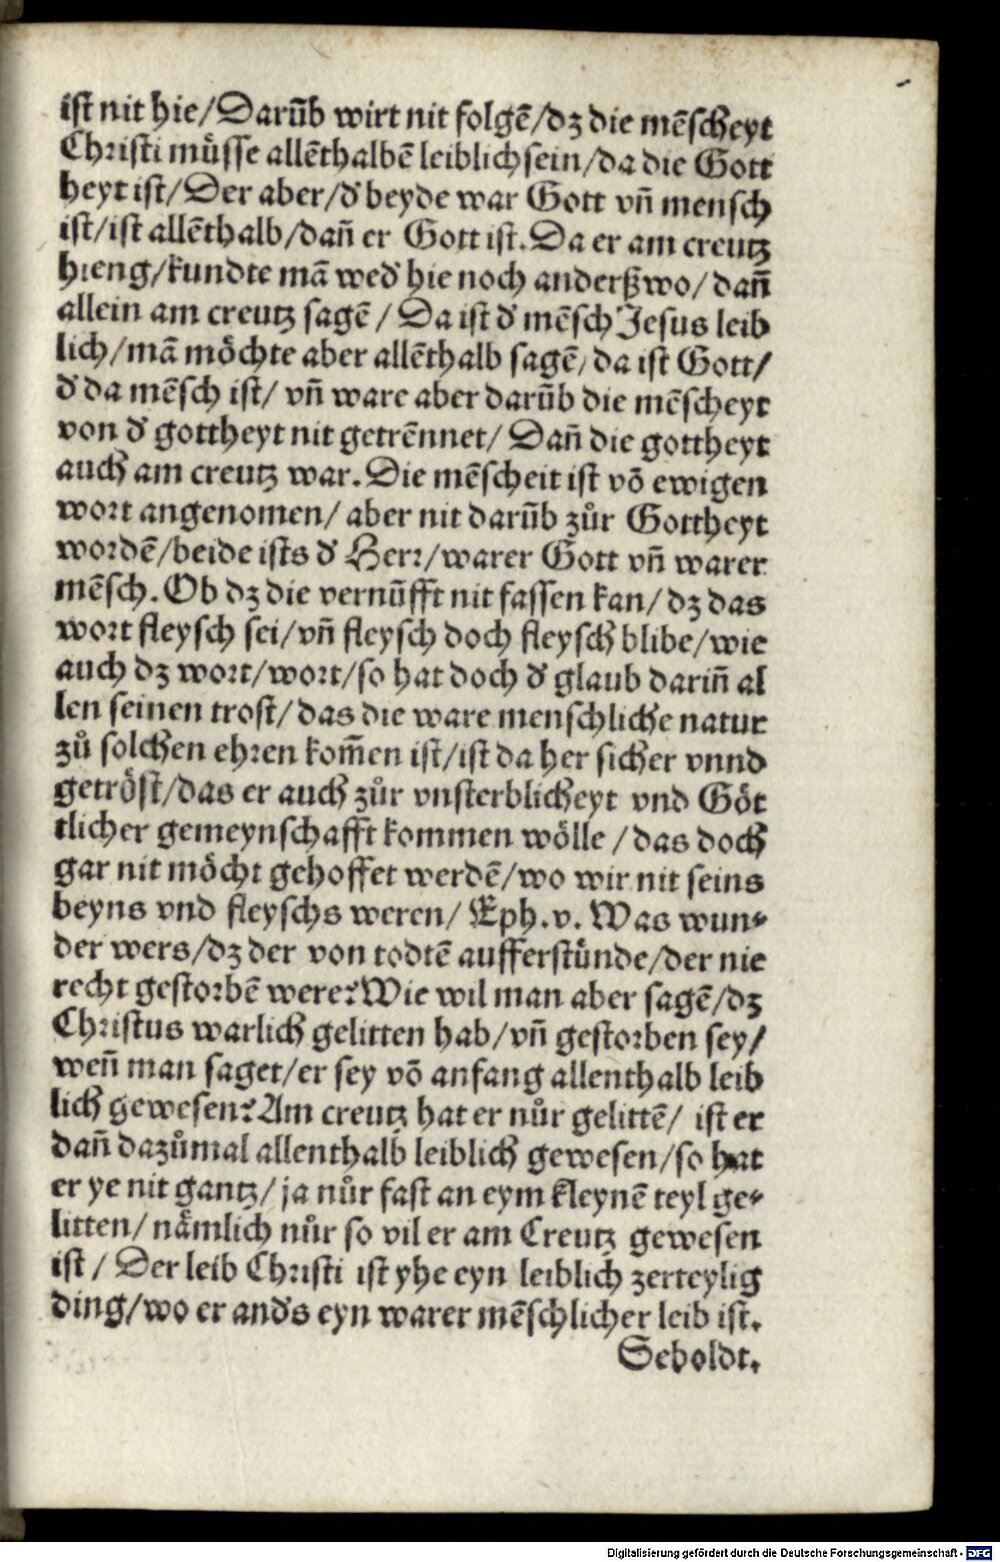 ist nit hie/Darũb wirt nit folgẽ/dz die mẽscheyt
Christi müsse allẽthalbẽ leiblich sein/da die Gott
heyt ist/Der aber/d' beyde war Gott vñ mensch
ist/ist allẽthalb/dañ er Gott ist. Da er am creutz
hieng/kundte mã wed' hie noch anderßwo/dañ
allein am creutz sagẽ/Da ist d' mẽsch Jesus leib
lich/mã möchte aber allẽthalb sagẽ/da ist Gott/
d' da mẽsch ist/ vñ ware aber darũb die mẽscheyt
von d' gottheyt nit getrẽnnet/ Dañ die gottheyt
auch am creutz war. Die mẽscheit ist võ ewigen
wort angenomen/ aber nit darũb zůr Gottheyt
wordẽ/beide ists d' Herr/warer Gott vñ warer
mẽsch. Ob dz die vernũfft nit fassen kan/ dz das
wort fleysch sei/vñ fleysch doch fleysch blibe/wie
auch dz wort/wort/so hat doch d' glaub dariñ al
len seinen trost/das die ware menschliche natur
zů solchen ehren kom̃en ist/ist da her sicher vnnd
getröst/das er auch zůr vnsterblicheyt vnd Göt
tlicher gemeynschafft kommen wölle/das doch
gar nit möcht gehoffet werdẽ/wo wir nit seins
beyns vnd fleyschs weren/ Eph.v. Was wun⸗
der wers/dz der von todtẽ aufferstünde/der nie
recht gestorbẽ were? Wie wil man aber sagẽ/dz
Christus warlich gelitten hab/vñ gestorben sey/
weñ man saget/er sey võ anfang allenthalb leib
lich gewesen? Am creutz hat er nůr gelittẽ/ ist er
dañ dazůmal allenthalb leiblich gewesen/so hat
er ye nit gantz/ja nůr fast an eym kleynẽ teyl ge⸗
litten/nämlich nůr so vil er am Creutz gewesen
ist/ Der leib Christi ist yhe eyn leiblich zerteylig
ding/wo er and's eyn warer mẽschlicher leib ist.
Seboldt.
Digitalisierung gefördert durch die Deutsche Forschungsgemeinschaft - DFG